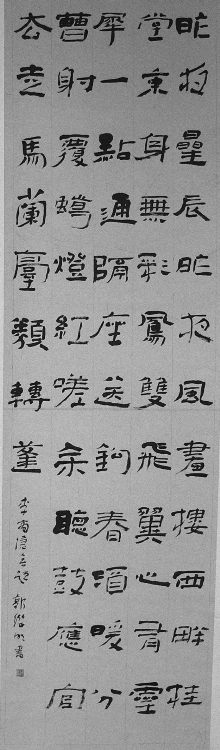 昨夜星辰昨夜風畫樓西畔桂
堂東身無彩鳳雙飛翼心有靈
犀一點通隔座送鉤春酒暖分
曹射覆蠟燈紅嗟余聽鼓應官
去走馬蘭臺類轉蓬
李商隱無題